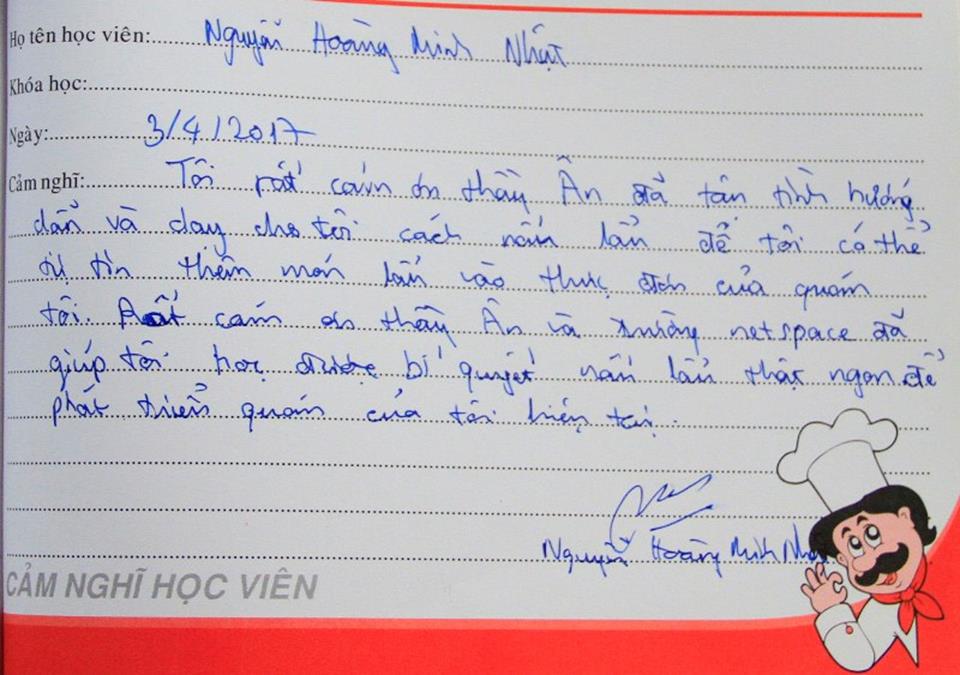 Họ tên học viên: Nguyễn Hoàng Minh Nhật
Khóa học:
Ngày: 3/4/2017
Cảm nghĩ: Tôi rất cảm ơn thầy Ân đã tận tình hướng
dẫn và dạy cho tôi cách nấu lẩu để tôi có thể
tự tin thêm món lẩu vào thực đơn của quán
tôi. Rất cám ơn thầy Ân và trường netspace đã
giúp tôi học được bí quyết nấu lẩu thật ngon để
phát triển quán của tôi hiện tại.
Nguyễn Hoàng Minh Nhật
CẢM NGHĨ HỌC VIÊN